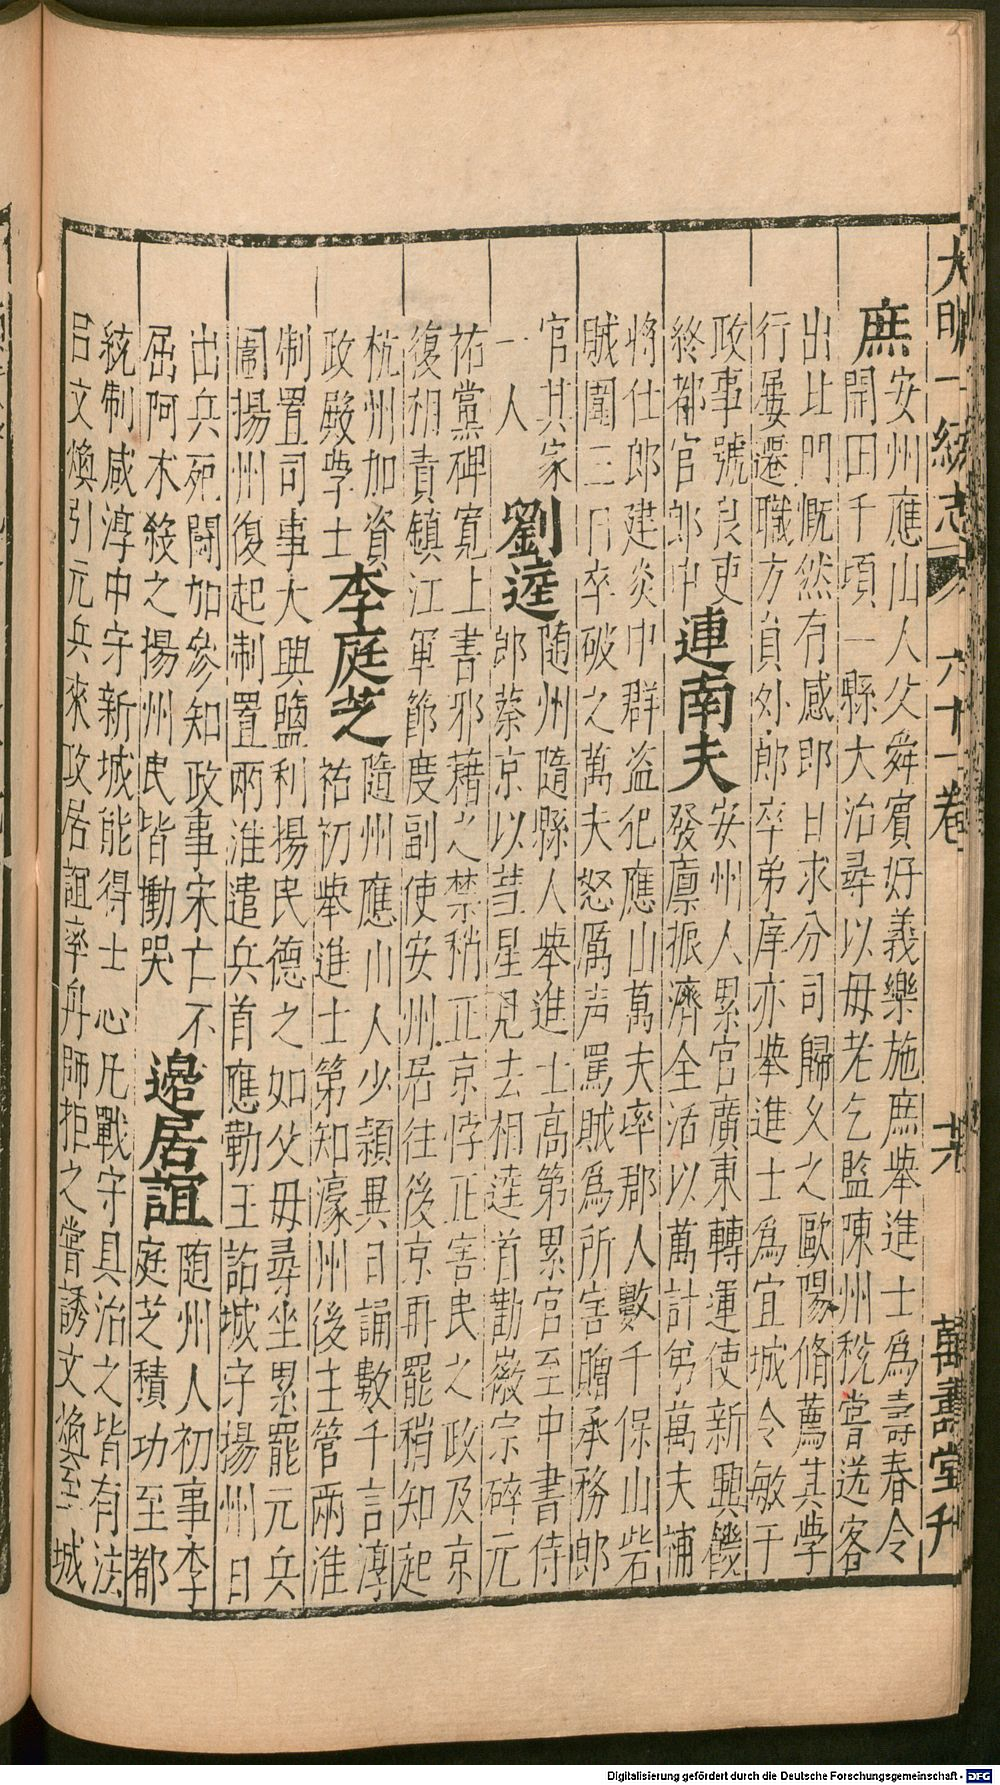 大明一統志 六十一卷 萬壽堂刊
庶
安州應山人父舜賓好義樂施庶舉進士爲壽春令
開田千頃一縣大治尋以母老乞監陳州稅嘗送客
出北門慨然有感即日求分司歸父之歐陽脩薦其學
行屢遷職方員外郎卒弟庠亦舉進士爲宜城令敏于
政事號良吏
連南夫
安州人累官廣東轉運使新興饑
發廩振濟全活以萬計
終都官郎中
男萬夫補
將仕郎建炎中群盜犯應山萬夫率郡人數千保山砦
賊圍三日卒破之萬夫怒厲声罵賊爲所害贈承務郎
官其家
一人
劉逵
随州隨縣人舉進士高第累官至中書侍
郎蔡京以彗星見去相逵首勸徽宗碎元
祐黨碑寬上書邪藉之禁稍正京悖正害民之政及京
復相責鎮江軍節度副使安州居住後京再罷稍知起
杭州加資
政殿學士
李庭芝
隨州應山人少頴異日誦數千言淳
祐初舉進士第知濠州後主管兩淮
制置司事大興鹽利揚民德之如父母尋坐累罷元兵
圍揚州復起制置兩淮遣兵首應勤王詔城守揚州日
出兵死鬪加參知政事宋亡不
屈阿术殺之揚州民皆慟哭
邉居誼
随州人初事李
庭芝積功至都
統制咸淳中守新城能得士心凡戰守具治之皆有法
吕文煥引元兵來攻居誼率舟師拒之嘗誘文煥至城
Digitalisierung gefördert durch die Deutsche Forschungsgemeinschaft - DFG